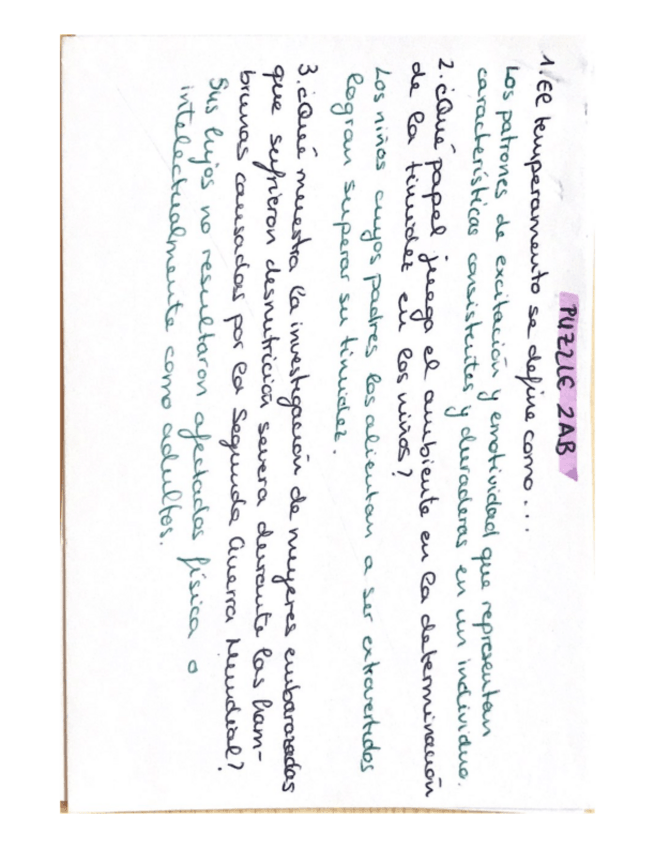 PUZZLE 2AB
1. El temperamento se define como...
Los patrones de excitación y emotividad que representan
características consistentes y duraderas en un individuo.
2. ¿Qué papel juega el ambiente en la determinación
de la timidez en los niños?
Los niños cuyos padres los alientan a ser extrovertidos
logran superar su timidez.
3. ¿Qué muestra la investigación de mujeres embarazadas
que sufrieron desnutrición severa durante las ham-
brunas causadas por la Segunda Guerra Mundial?
Sus hijos no resultaron afectados física o
intelectualmente como adultos.